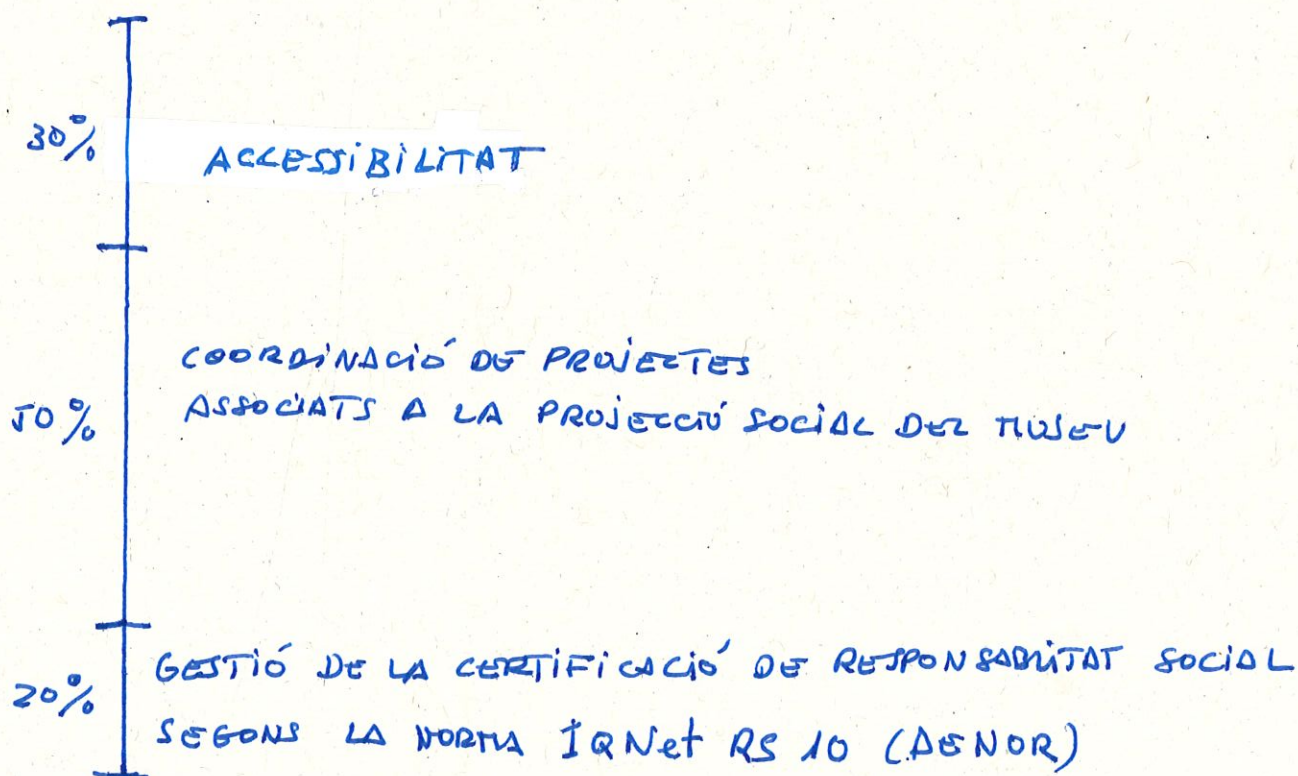 30%
ACCESSIBILITAT
50%
COORDINACIÓ DE PROJECTES
ASSOCIATS A LA PROJECCIÓ SOCIAL DEL MUSEU
20%
GESTIÓ DE LA CERTIFICACIÓ DE RESPONSABILITAT SOCIAL
SEGONS LA NORMA IQNet RS 10 (AENOR)